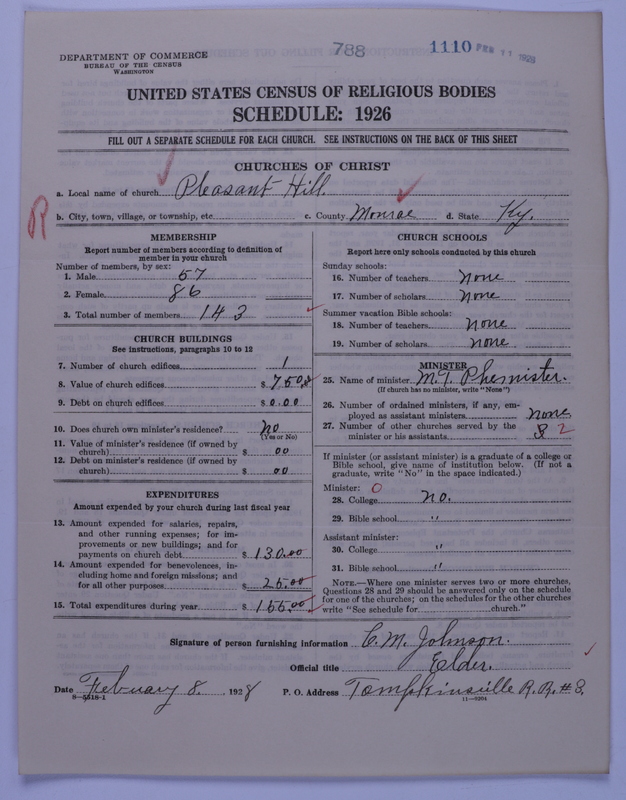 788
1110 FEB 11 1928
DEPARTMENT OF COMMERCE
BUREAU OF THE CENSUS
WASHINGTON
UNITED STATES CENSUS OF RELIGIOUS BODIES
SCHEDULE: 1926
FILL OUT A SEPARATE SCHEDULE FOR EACH CHURCH. SEE INSTRUCTIONS ON THE BACK OF THIS SHEET
CHURCHES OF CHRIST
a. Local name of church Pleasant Hill.
R
b. City, town, village, or township, etc. c. County Monroe d. State Ky.
MEMBERSHIP
Report number of members according to definition of
member in your church
Number of members, by sex:
1. Male 57
2. Female 86
3. Total number of members 143
CHURCH BUILDINGS
See instructions, paragraphs 10 to 12
7. Number of church edifices 1
8. Value of church edifices $ 750
9. Debt on church edifices $ 0.00
10. Does church own minister's residence? No
(Yes or No)
11. Value of minister's residence (if owned by
church) $ 00
12. Debt on minister's residence (if owned by
church) $ 00
EXPENDITURES
Amount expended by your church during last fiscal year
13. Amount expended for salaries, repairs,
and other running expenses; for im-
provements or new buildings; and for
payments on church debt $ 130.00
14. Amount expended for benevolences, in-
cluding home and foreign missions; and
for all other purposes $ 25.00
15. Total expenditures during year $ 155.00
CHURCH SCHOOLS
Report here only schools conducted by this church
Sunday schools:
16. Number of teachers none
17. Number of scholars none
Summer vacation Bible schools:
18. Number of teachers none
19. Number of scholars none
MINISTER
25. Name of minister M. T. Phemister.
(If church has no minister, write "None")
26. Number of ordained ministers, if any, em-
ployed as assistant ministers none
27. Number of other churches served by the
minister or his assistants 3 2
If minister (or assistant minister) is a graduate of a college or
Bible school, give name of institution below. (If not a
graduate, write "No" in the space indicated.)
Minister: 0
28. College no.
29. Bible school "
Assistant minister:
30. College "
31. Bible school "
NOTE.—Where one minister serves two or more churches,
Questions 28 and 29 should be answered only on the schedule
for one of the churches; on the schedules for the other churches
write "See schedule for church."
Signature of person furnishing information C. M. Johnson.
Official title Elder.
Date February 8. , 1928 P. O. Address Tompkinsville R.R.#3.
8—5518-1 11—9204